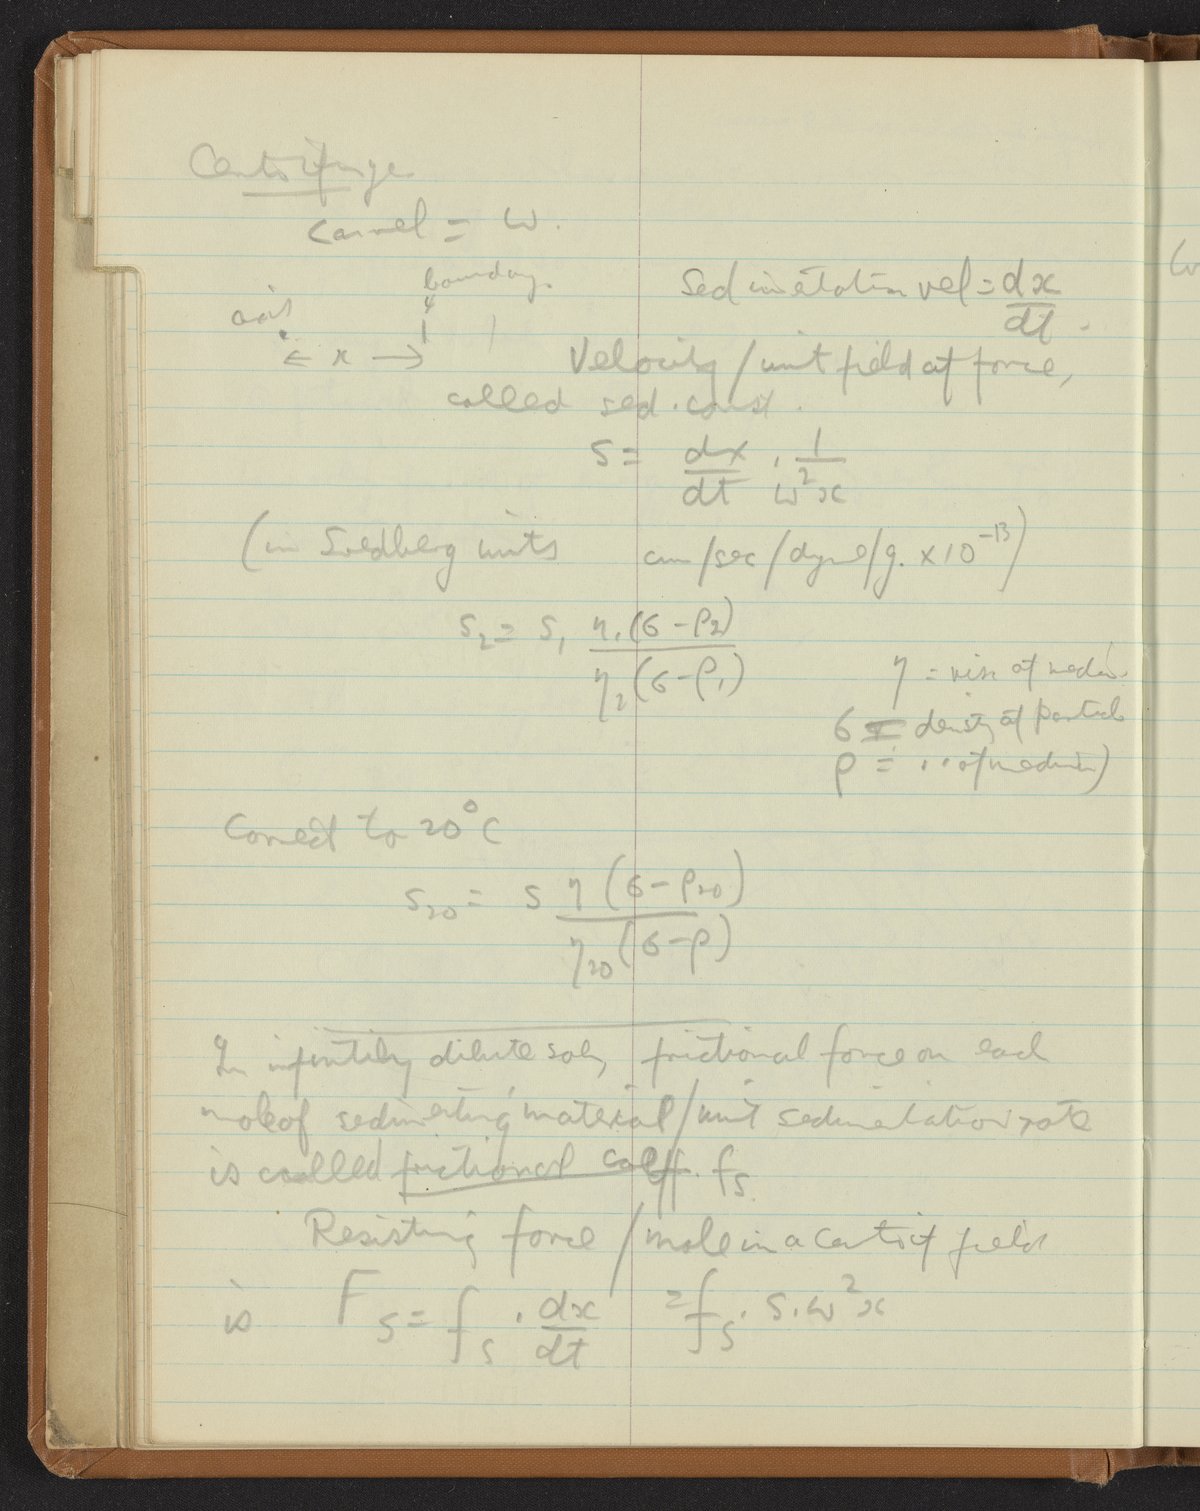 Centrifuge
= ω.
boundary.
axis
← x →
Sedimentation vel = dx/dt.
Velocity / unit field of force,
called sed. const.
S = dx/dt · 1/ω²x
(in Svedberg units cm/sec/dyne/g. × 10⁻¹³)
S₂ = S₁ η₁(σ - ρ₂) / η₂(σ - ρ₁)
η = visc of medium.
σ = density of particle
ρ = ,, of medium)
Correct to 20°C
S₂₀ = S η (σ - ρ₂₀) / η₂₀ (σ - ρ)
In infinitely dilute soln, frictional force on each
mole of sedimenting material / unit sedimentation rate
is called frictional coeff. fₛ
Resisting force / mole in a centrif field
is Fₛ = fₛ · dx/dt = fₛ · S · ω²x